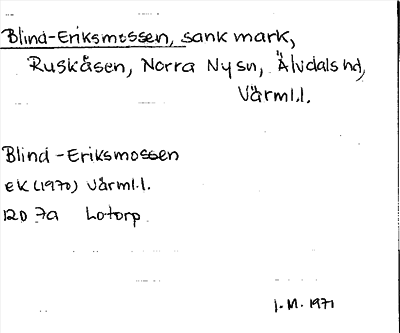 Blind-Eriksmossen, sank mark,
Ruskåsen, Norra Ny sn, Älvdals hd,
Värml.l.
Blind-Eriksmossen
EK(1970) Värml.l.
12D 7a Lotorp
1.M. 1971